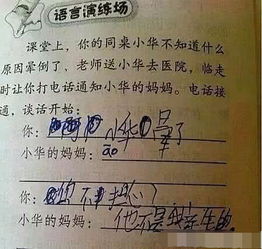 语言演练场
课堂上，你的同桌小华不知道什么
原因晕倒了，老师送小华去医院，临走
时让你打电话通知小华的妈妈。电话接
通，谈话开始：
你：阿阿 小华晕了
小华的妈妈：āo
你：妈不担心？
小华的妈妈：他不是我亲生的。